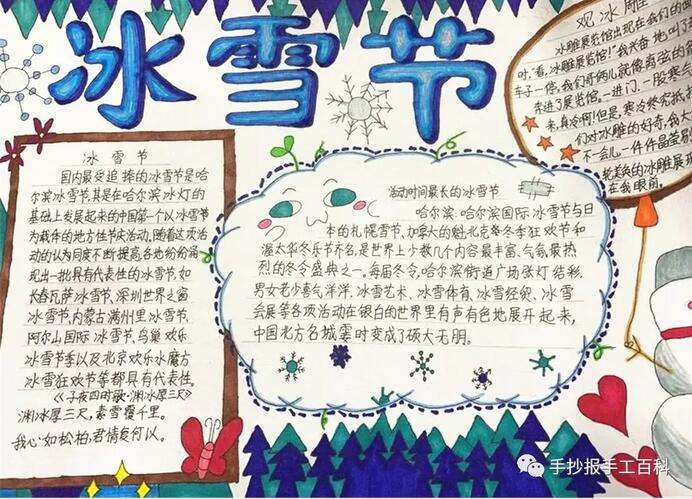 冰雪节
冰雪节
国内最受追捧的冰雪节是哈
尔滨冰雪节,其是在哈尔滨冰灯的
基础上发展起来的中国第一个以冰雪节
为载体的地方性节庆活动。随着这项活
动的认为同度不断提高,各地纷纷涌
现出一批具有代表性的冰雪节,如
长春瓦萨冰雪节、深圳世界之窗
冰雪节、内蒙古满州里冰雪节、
阿尔山国际冰雪节、鸟巢欢乐
冰雪节季以及北京欢乐水魔方
冰雪狂欢节等都具有代表性。
《子夜四时歌·渊冰厚三尺》
渊冰厚三尺,素雪覆千里。
我心如松柏,君情复何似。
活动时间最长的冰雪节
哈尔滨:哈尔滨国际冰雪节与日
本的札幌雪节、加拿大的魁北克冬季狂欢节和
渥太华冬乐节齐名,是世界上少数几个内容最丰富、气氛最热
烈的冬令盛典之一。每届冬令,哈尔滨街道广场张灯结彩,
男女老少喜气洋洋,冰雪艺术、冰雪体育、冰雪经贸、冰雪
会展等各项活动在银白的世界里有声有色地展开起来,
中国北方名城霎时变成了硕大无朋。
观冰雕
冰雕展览馆出现在我们的眼
时,"看,冰雕展览馆!"我兴奋地叫了
车子一停,我们哥俩就像离弦的
奔进了展览馆。一进门,一股寒
来,真冷啊!但是,寒冷终究抵
们对冰雕的好奇,我大
不一会儿一件件晶莹
乾美奂的冰雕展
在我眼前。
手抄报手工百科